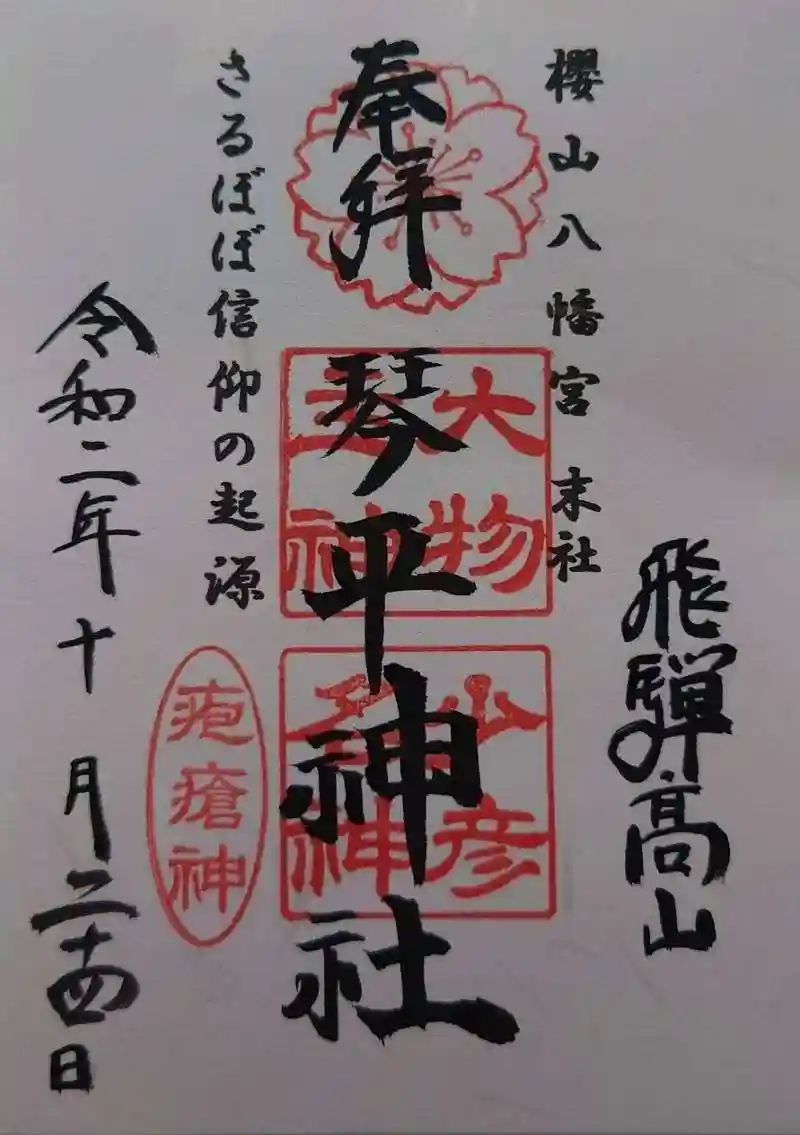 飛騨高山
櫻山八幡宮 末社
奉拝
琴平神社
大物主神
山彦名神
さるぼぼ信仰の起源
疱瘡神
令和二年十月二十四日